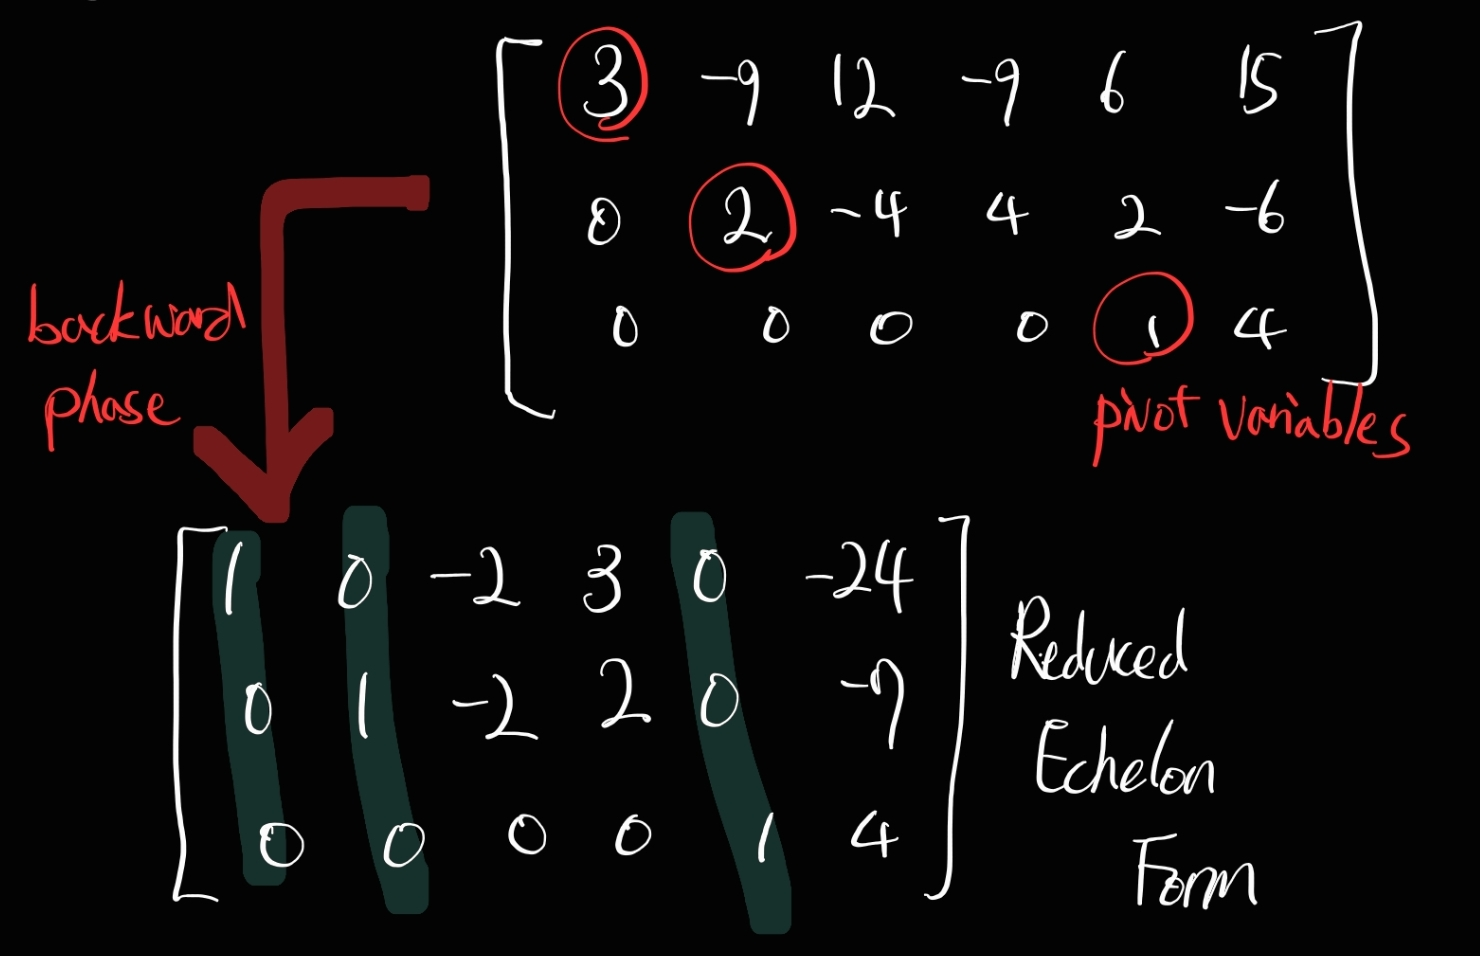 3 -9 12 -9 6 15
0 2 -4 4 2 -6
0 0 0 0 1 4
pivot variables
backward
phase
1 0 -2 3 0 -24
0 1 -2 2 0 -7
0 0 0 0 1 4
Reduced
Echelon
Form